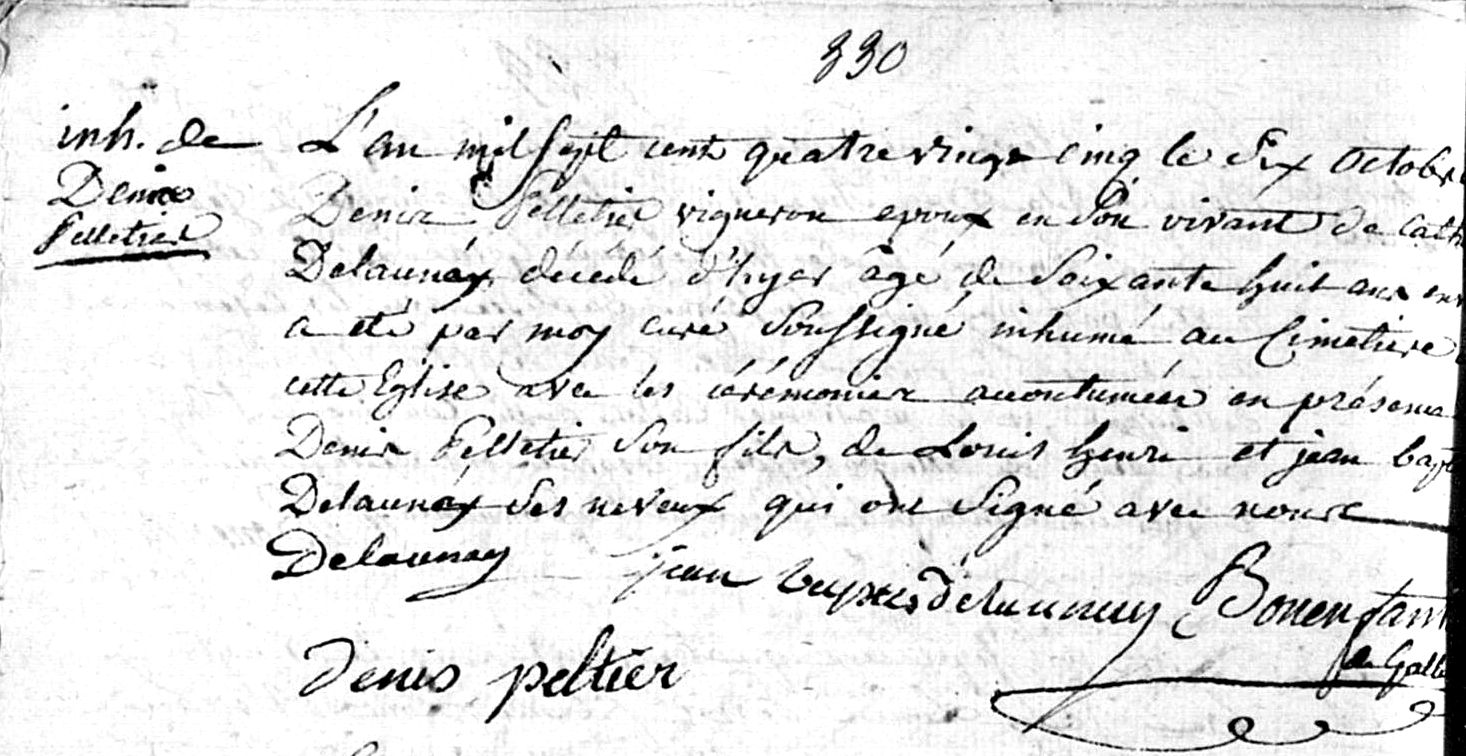 330
inh. de
Denis
Pelletier
L'an mil sept cent quatrevingt cinq le six octobre
Denis Pelletier vigneron epoux en son vivant de Cath
Delaunay, décédé d'hyer âgé de soixante huit ans env
a été par moy curé soussigné inhumé au Cimetiere
cette Eglise avec les cérémonies accoutumées en présence
Denis Pelletier son fils, de Louis henri et jean bapt
Delaunay ses neveux qui ont signé avec nous
Delaunay jean baptiste delaunay Bonenfant
denis peltier